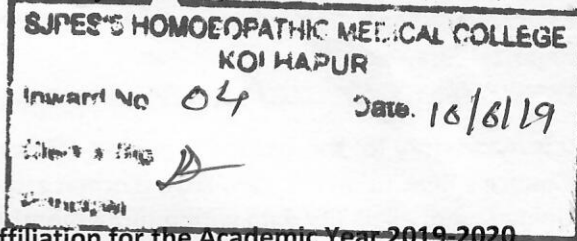 SJPES'S HOMOEOPATHIC MEDICAL COLLEGE
KOLHAPUR
Inward No 04 Date. 10/6/19
Clerk's Sig
Principal
ffiliation for the Academic Year 2019-2020